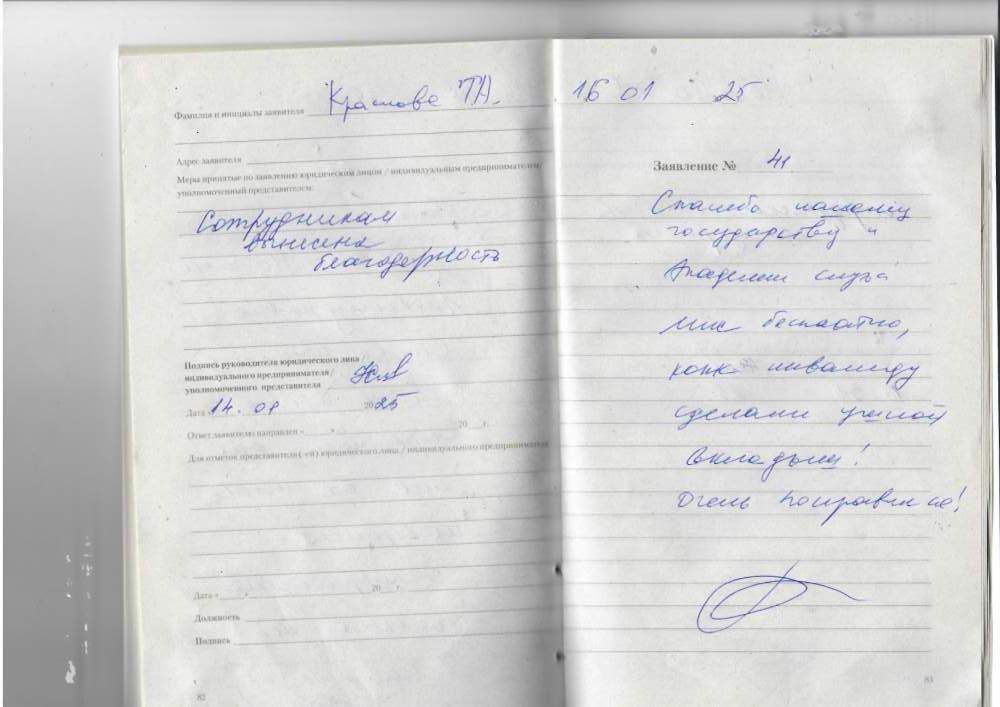 Фамилия и инициалы заявителя Краснова Т.А.
Адрес заявителя
Меры принятые по заявлению юридическим лицом / индивидуальным предпринимателем,
уполномоченный представителем:
Сотрудникам
вынесена
благодарность
Подпись руководителя юридического лица /
индивидуального предпринимателя /
уполномоченного представителя
Дата «14. 01 2025
Ответ заявителю направлен « » 20 г.
Для отметок представителя( -ей) юридического лица / индивидуального предпринимателя
Дата « » 20 г.
Должность
Подпись
82
16 01 25
Заявление № 41
Спасибо нашему
государству и
Академии слуха
мне бесплатно,
как инвалиду
сделали ушной
вкладыш!
Очень понравилось!
83